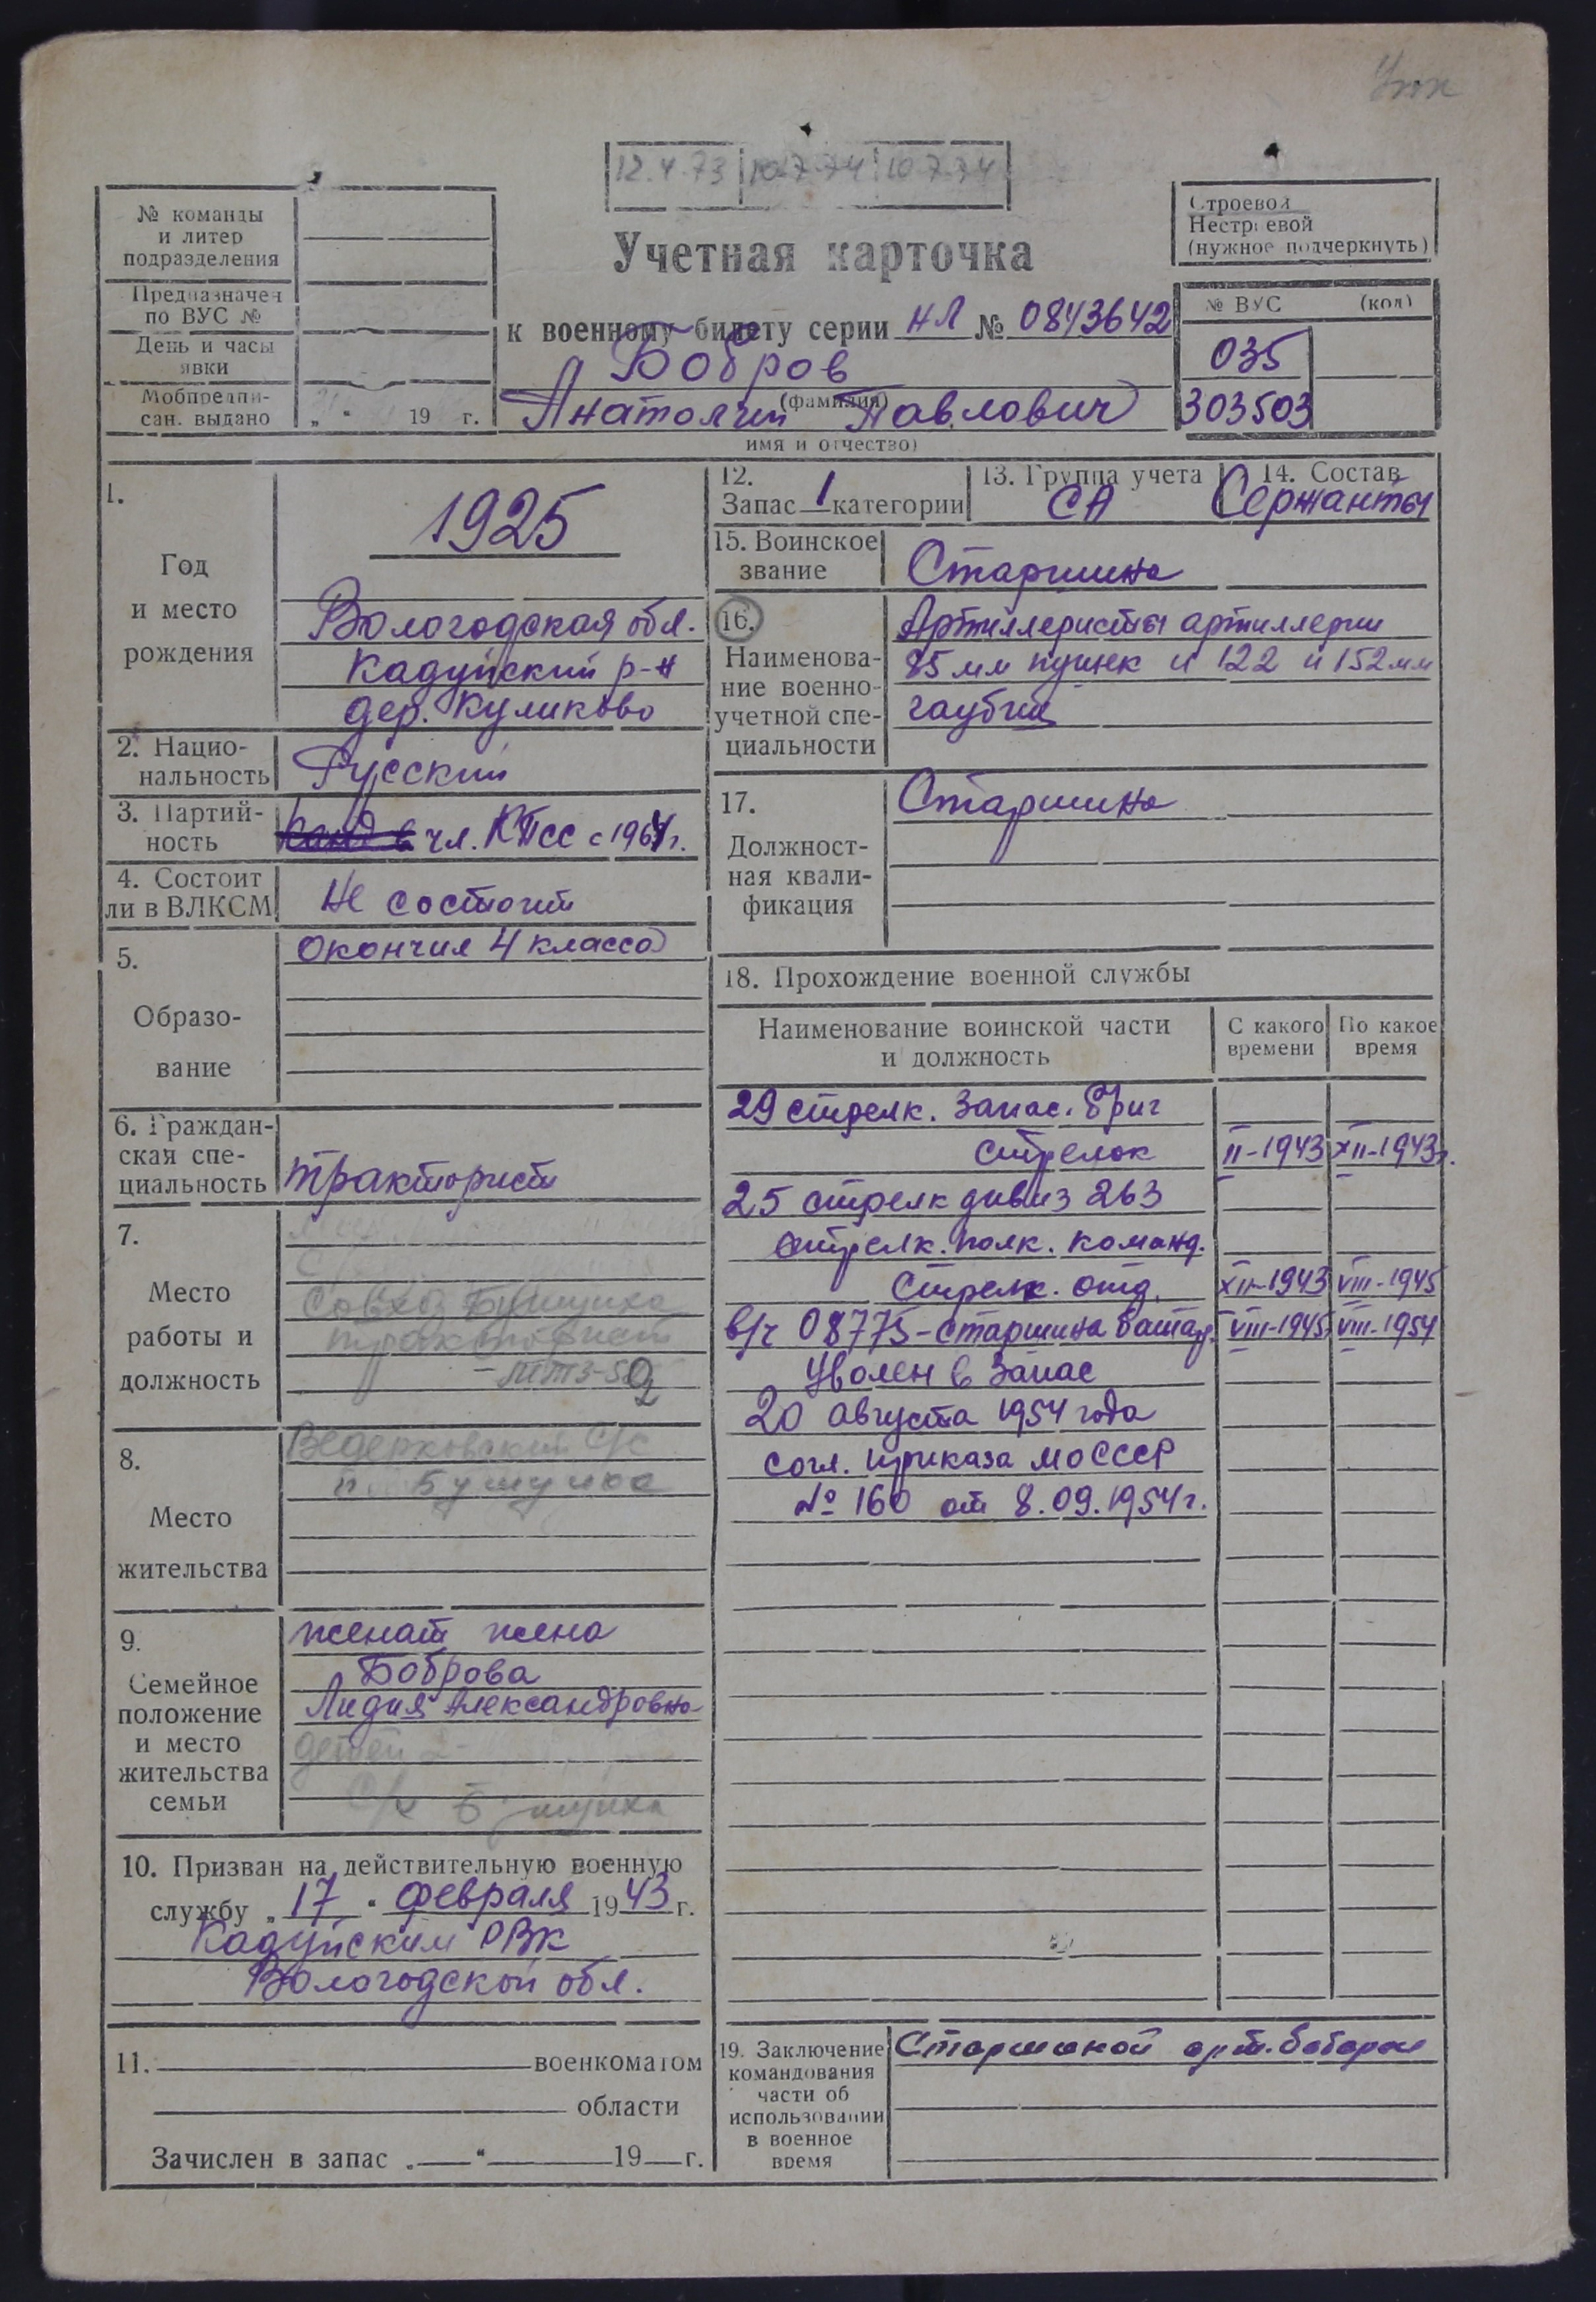 12.4.73 10.7.74 10.7.74
№ команды
и литер
подразделения
Предназначен
по ВУС №
День и часы
явки
Мобпредпи-
сан. выдано
„ " 19 г.
Учетная карточка
к военному билету серии НЛ № 0843642
Бобров
(фамилия)
Анатолий Павлович
имя и отчество)
Строевой
Нестроевой
(нужное подчеркнуть)
№ ВУС (код)
035
303503
1.
Год
и место
рождения
1925
Вологодская обл.
Кадуйский р-н
дер. Куликово
2. Нацио-
нальность
Русский
3. Партий-
ность
чл. КПСС с 1964г.
4. Состоит
ли в ВЛКСМ
Не состоит
5.
Образо-
вание
Окончил 4 класса
6. Граждан-
ская спе-
циальность
тракторист
7.
Место
работы и
должность
Совхоз Бушуиха
тракторист
8.
Место
жительства
Ведерковский с/с
п. Бушуиха
9.
Семейное
положение
и место
жительства
семьи
женат жена
Боброва
Лидия Александровна
детей 2
с/х Бушуиха
10. Призван на действительную военную
службу „17" февраля 1943 г.
Кадуйским РВК
Вологодской обл.
11. военкоматом
области
Зачислен в запас „ " 19 г.
12.
Запас 1 категории
13. Группа учета
СА
14. Состав
Сержанты
15. Воинское
звание
Старшина
16.
Наименова-
ние военно-
учетной спе-
циальности
Артиллеристы артиллерии
85 мм пушек и 122 и 152 мм
гаубиц
17.
Должност-
ная квали-
фикация
Старшина
18. Прохождение военной службы
Наименование воинской части
и должность
С какого
времени
По какое
время
29 стрелк. запас. бриг
стрелок II-1943 XII-1943г.
25 стрелк дивиз 263
стрелк. полк. команд.
Стрелк. отд. XII-1943 VIII-1945
в/ч 08775-старшина батар. VIII-1945 VIII-1954
Уволен в запас
20 августа 1954 года
согл. приказа МО СССР
№ 160 от 8.09.1954г.
19. Заключение
командования
части об
использовании
в военное
время
Старшиной арт. батареи